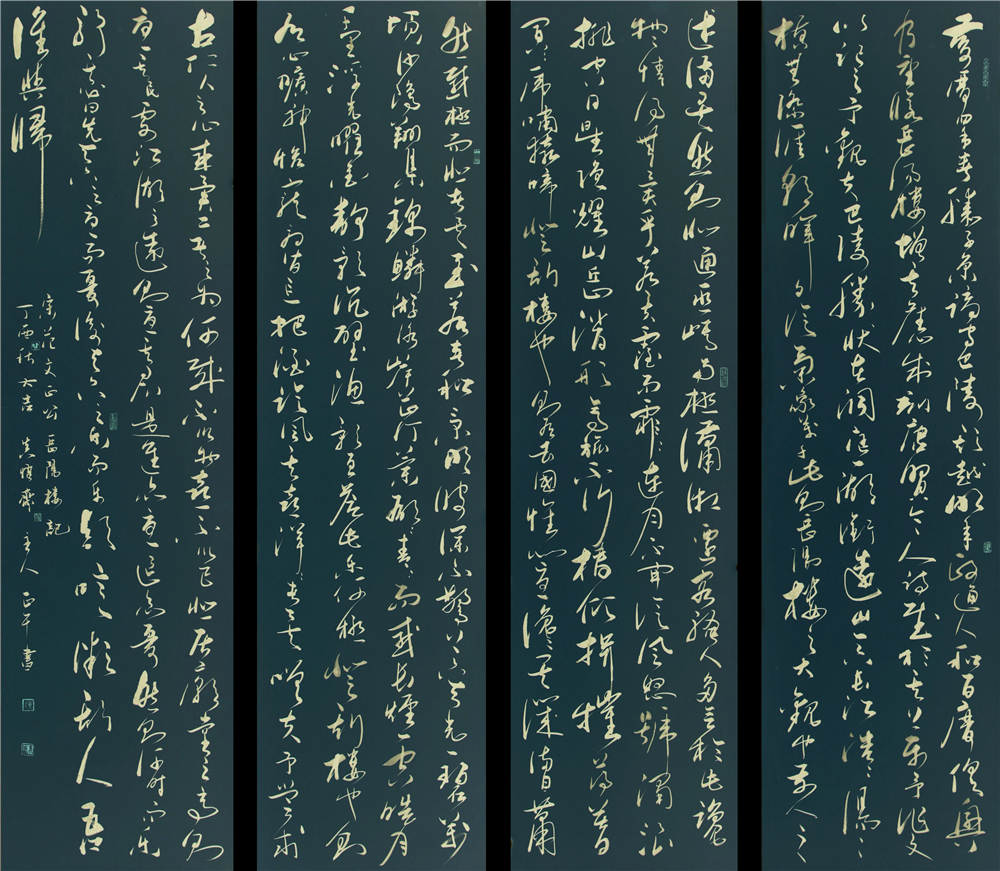 慶曆四年春滕子京謫守巴陵郡越明年政通人和百廢俱興
乃重修岳陽樓增其舊制刻唐賢今人詩賦於其上屬予作文
以記之予觀夫巴陵勝狀在洞庭一湖銜遠山吞長江浩浩湯湯
橫無際涯朝暉夕陰氣象萬千此則岳陽樓之大觀也前人之
述備矣然則北通巫峽南極瀟湘遷客騷人多會於此覽
物情得無異乎若夫霪雨霏霏連月不開陰風怒號濁浪
排空日星隱耀山岳潛形商旅不行檣傾楫摧薄暮
冥冥虎嘯猿啼登斯樓也則有去國懷鄉憂讒畏譏滿目蕭
然感極而悲者矣至若春和景明波瀾不驚上下天光一碧萬
頃沙鷗翔集錦鱗游泳岸芷汀蘭郁郁青青而或長煙一空皓月
千里浮光曜金靜影沉璧漁歌互答此樂何極登斯樓也則
有心曠神怡寵辱偕忘把酒臨風其喜洋洋者矣嗟夫予嘗求
古仁人之心或異二者之為何哉不以物喜不以己悲居廟堂之高則
憂其民處江湖之遠則憂其君是進亦憂退亦憂然則何時而樂
耶其必曰先天下之憂而憂後天下之樂而樂歟噫微斯人吾
誰與歸
宋范文正公岳陽樓記
丁酉秋大吉齋主人正平書